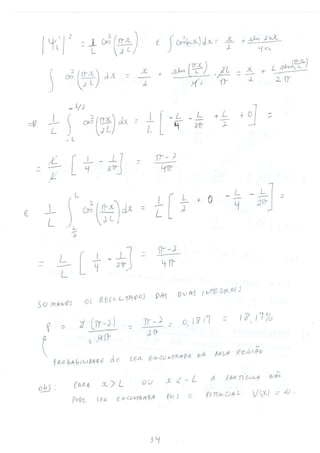 |Ψ₁|² = 1/L cos²(πx/2L) e ∫ cos²(ax) dx = x/2 + sen 2ax/4a
∫ cos²(πx/2L) dx = x/2 + sen(πx/L)/4 · 2L/π = x/2 + L sen(πx/L)/2π
⇒ 1/L ∫_{-L}^{-L/2} cos²(πx/2L) dx = 1/L [ -L/4 - L/2π + L/2 + 0 ] =
= L/L [ 1/4 - 1/2π ] = π-2/4π
e 1/L ∫_{L/2}^{L} cos²(πx/2L) dx = 1/L [ L/2 + 0 - L/4 - L/2π ] =
= L/L [ 1/4 - 1/2π ] = π-2/4π
SOMANDO OS RESULTADOS DAS DUAS INTEGRAIS
P = 2·(π-2)/4π = π-2/2π = 0,1817 = 18,17%
PROBABILIDADE de SER ENCONTRADA NA REGIÃO
obs: PARA x > L OU x < -L A PARTÍCULA NÃO
PODE SER ENCONTRADA POIS O POTENCIAL V(x) = ∞.
34